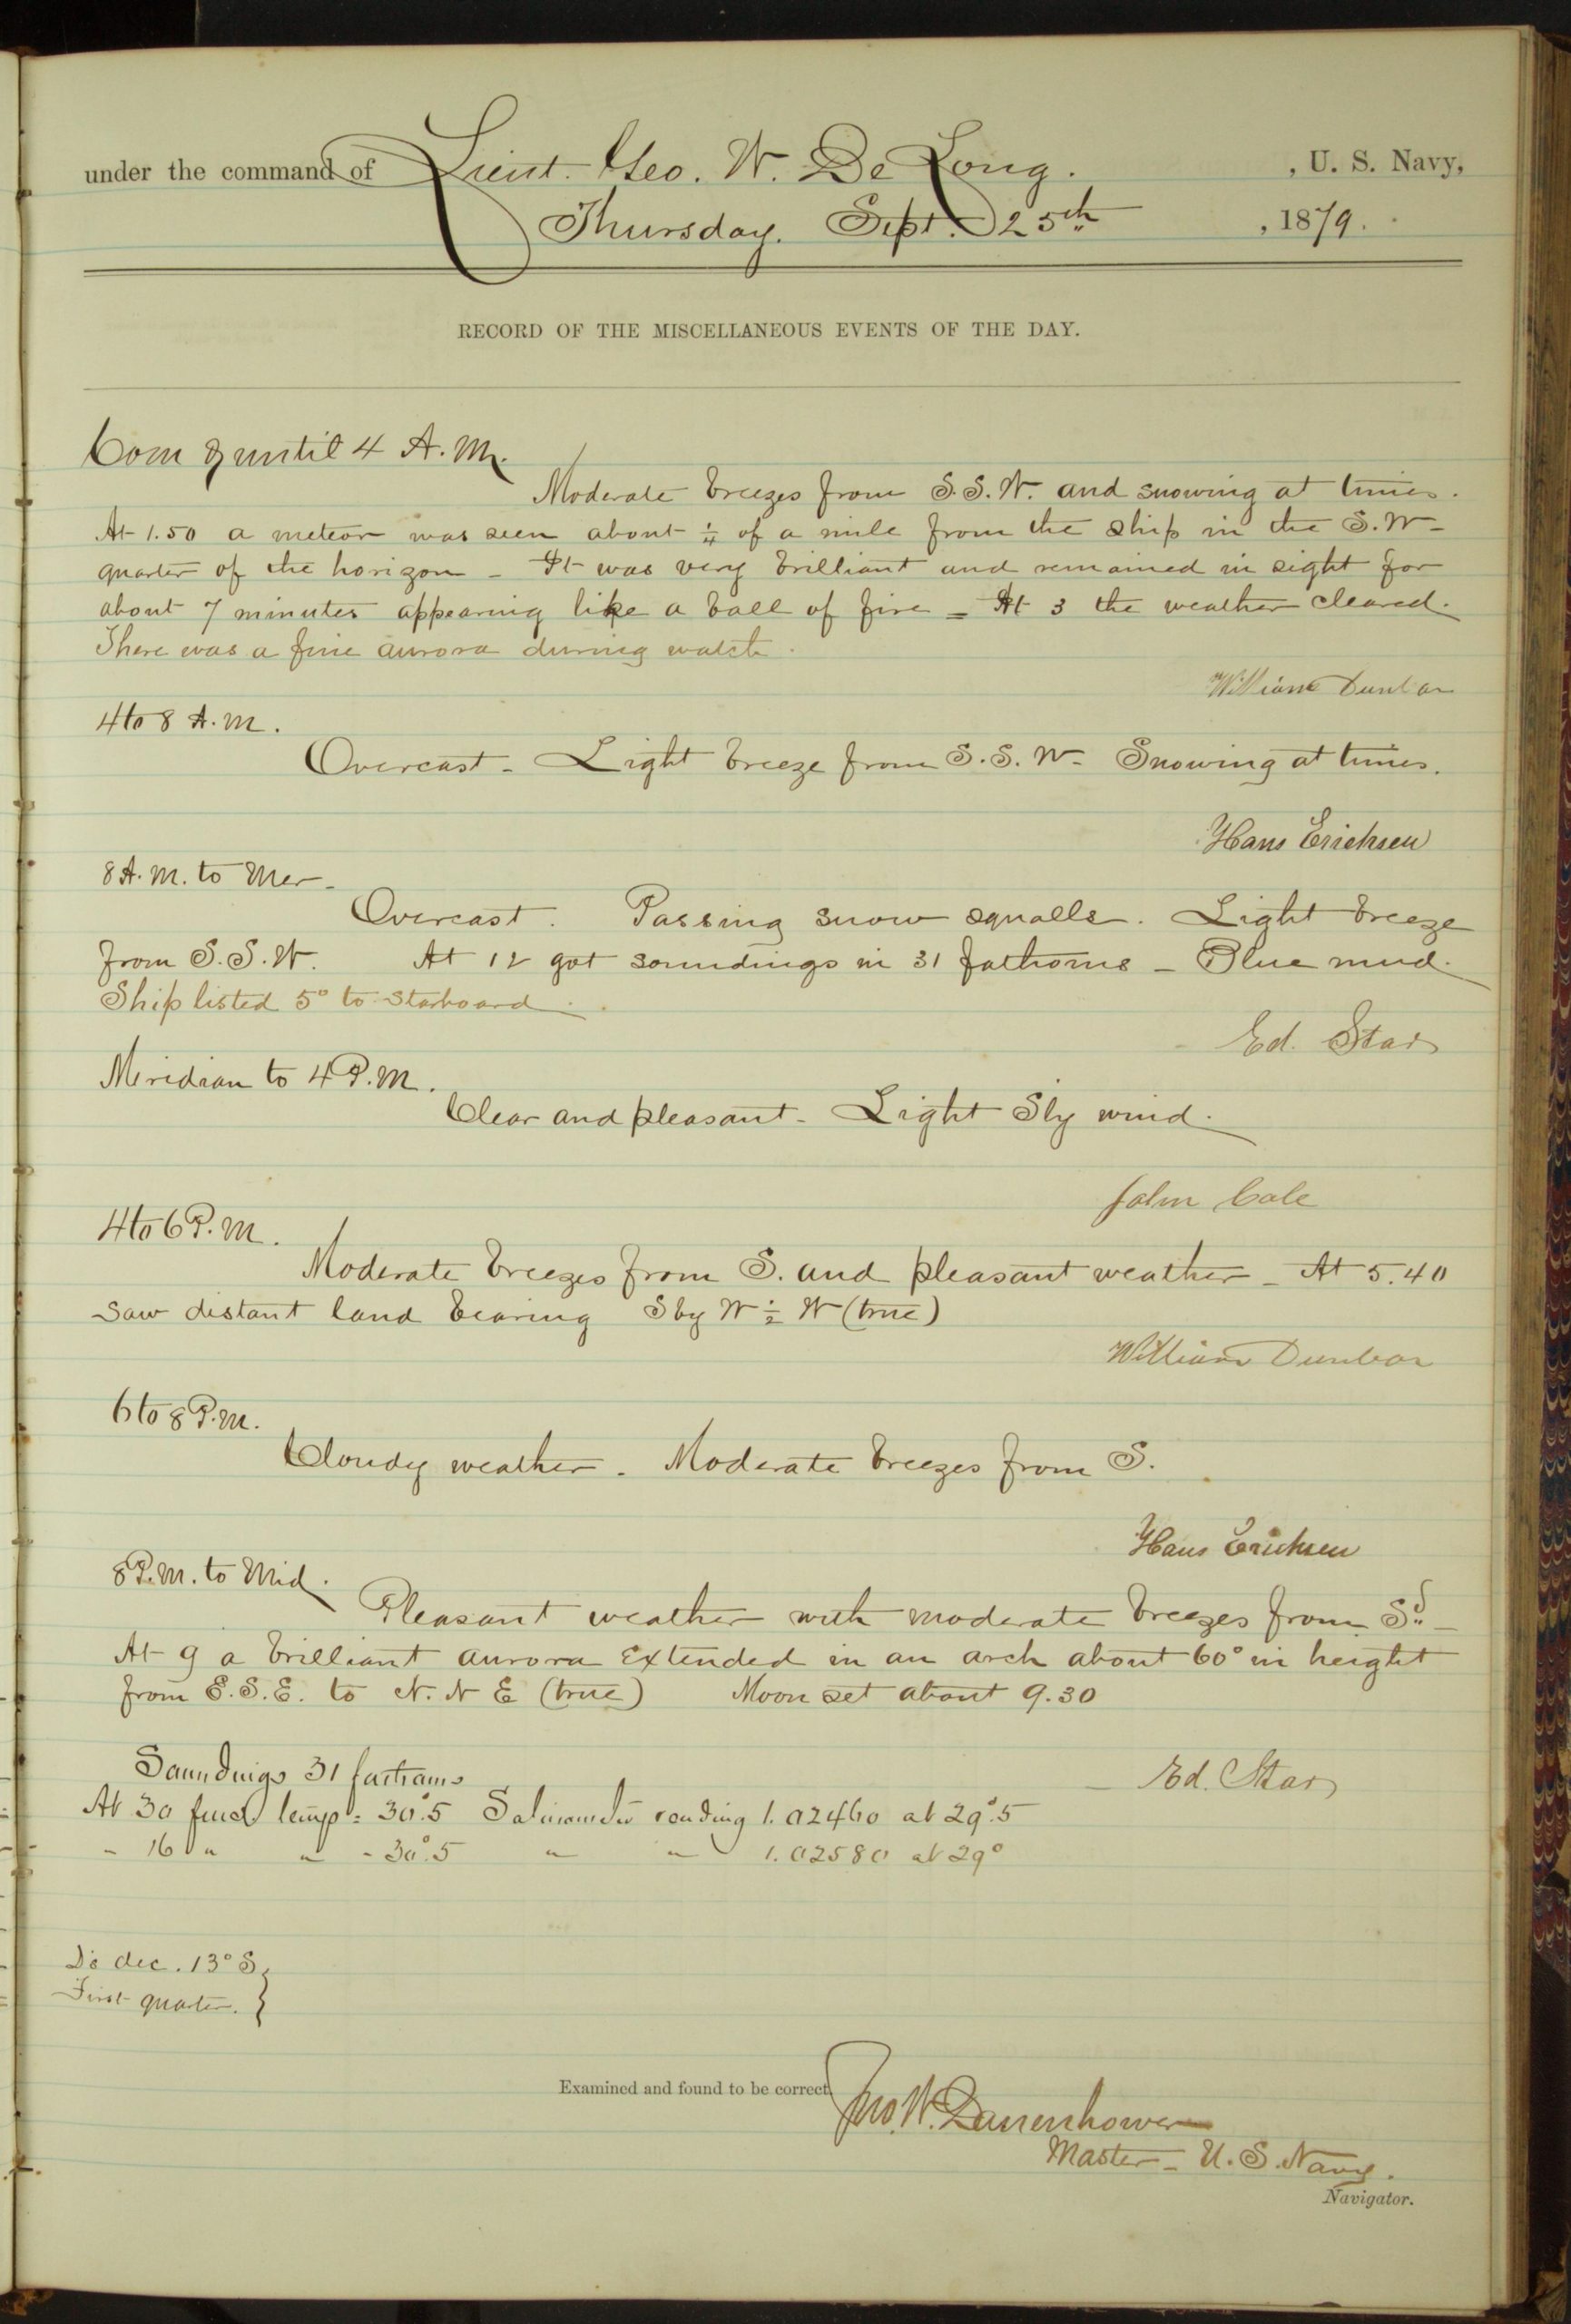 under the command of Lieut. Geo. W. De Long. , U. S. Navy,
Thursday. Sept. 25th , 1879.
RECORD OF THE MISCELLANEOUS EVENTS OF THE DAY.
Com g until 4 A.M.
Moderate breezes from S.S.W. and snowing at times.
At 1.50 a meteor was seen about 1/4 of a mile from the ship in the S.W-
quarter of the horizon - It was very brilliant and remained in sight for
about 7 minutes appearing like a ball of fire - At 3 the weather cleared.
There was a fine aurora during watch.
William Dunbar
4 to 8 A.M.
Overcast - Light breeze from S.S.W - Snowing at times.
Hans Erichsen
8 A.M. to Mer-
Overcast. Passing snow squalls. Light breeze
from S.S.W. At 12 got soundings in 31 fathoms - Blue mud.
Ship listed 5° to starboard.
Ed. Star
Meridian to 4 P.M.
Clear and pleasant - Light Sly wind.
John Cole
4 to 6 P.M.
Moderate breezes from S. and pleasant weather - At 5.40
saw distant land bearing S by W 1/2 W (true)
William Dunbar
6 to 8 P.M.
Cloudy weather. Moderate breezes from S.
Hans Erichsen
8 P.M. to Mid.
Pleasant weather with moderate breezes from Sd -
At 9 a brilliant aurora extended in an arch about 60° in height
from E.S.E. to N.N E (true) Moon set about 9.30
Ed. Star
Soundings 31 fathoms
At 30 temp = 30°.5 reading 1.02460 at 29°.5
" 16 " " - 30°.5 " " 1.02580 at 29°
D's dec. 13° S. }
First quarter. }
Examined and found to be correct.
Jno. W. Danenhower
Master - U.S. Navy.
Navigator.